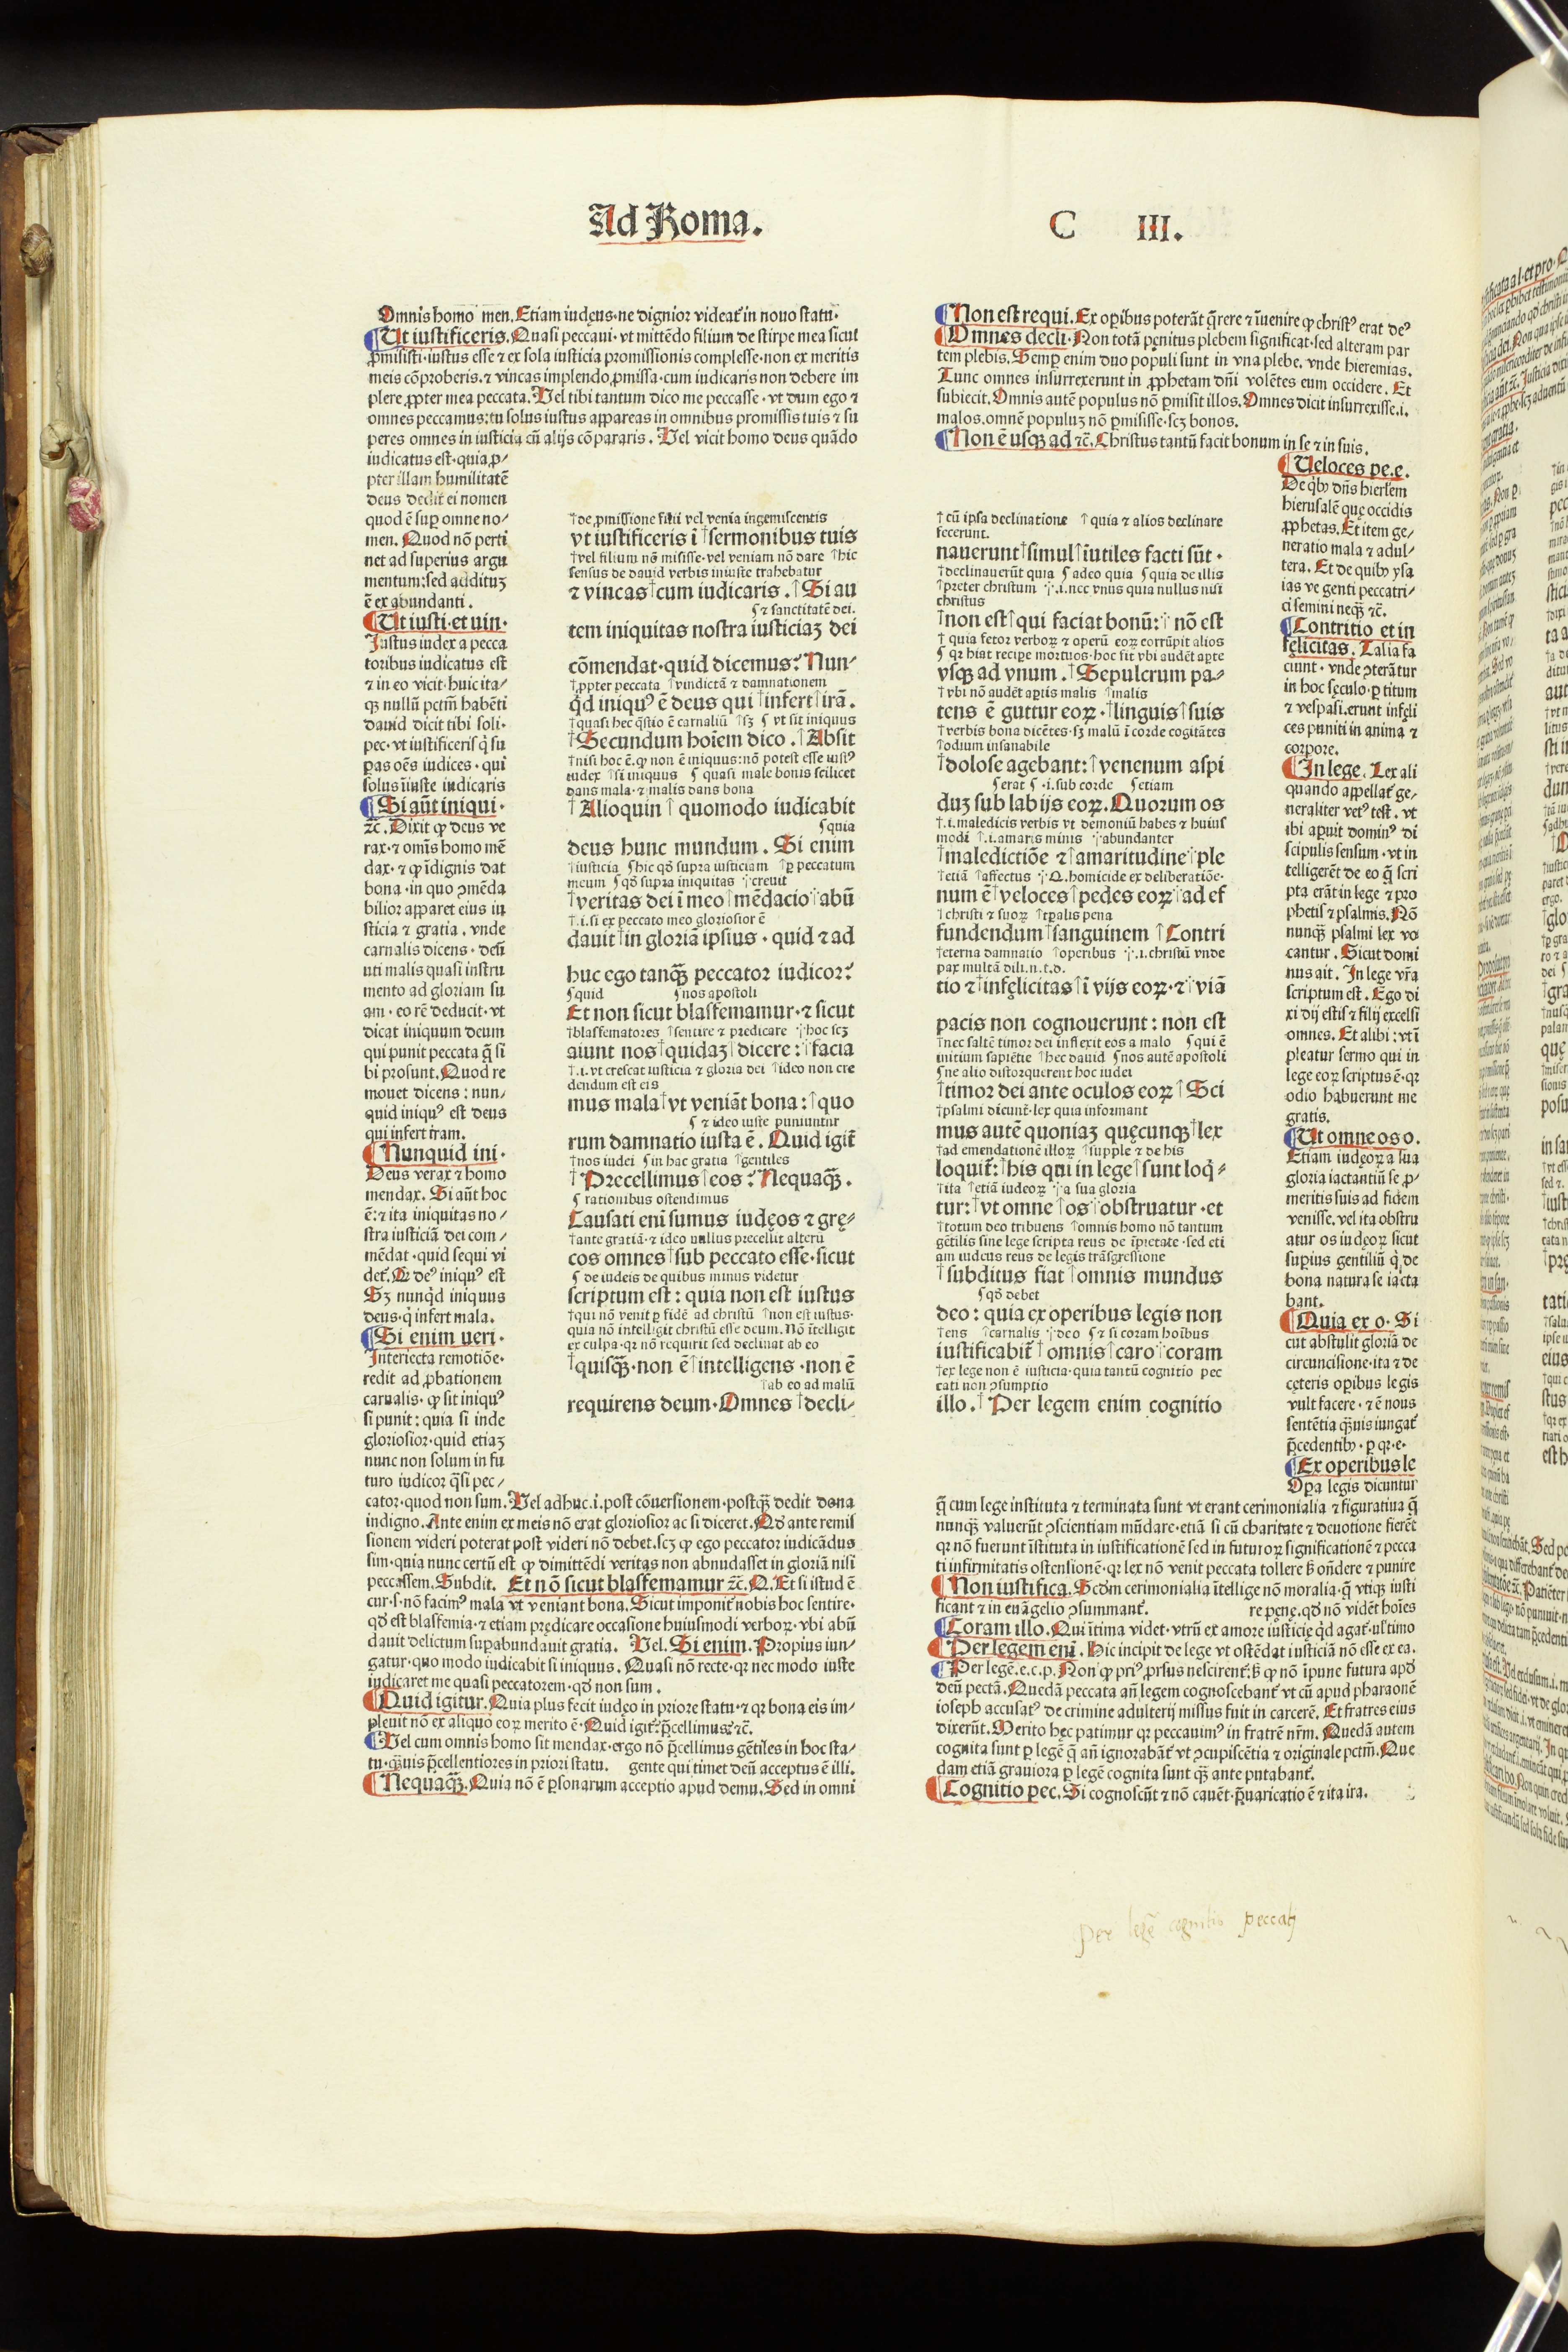 Ad Roma.
C III.
Omnis homo men. Etiam iudęus·ne dignior videat᷑ in nouo statu·
Ut iustificeris. Quasi peccaui·vt mittẽdo filium de stirpe mea sicut
ꝓmisisti·iustus esse ⁊ ex sola iusticia promissionis complesse·non ex meritis
meis cõproberis.⁊ vincas implendo ꝓmissa·cum iudicaris non debere im
plere ꝓpter mea peccata. Uel tibi tantum dico me peccasse·vt dum ego ⁊
omnes peccamus:tu solus iustus appareas in omnibus promissis tuis ⁊ su
peres omnes in iusticia cũ alijs cõpararis. Uel vicit homo deus quãdo
iudicatus est·quia ꝓ⸗
pter illam humilitatẽ
deus dedit ei nomen
quod ẽ suꝑ omne no⸗
men. Quod nõ perti
net ad superius argu
mentum:sed addituꝫ
ẽ ex abundanti.
Ut iusti·et uin·
Iustus iudex a pecca
toribus iudicatus est
⁊ in eo vicit·huic ita⸗
qꝫ nullũ pctm̃ habẽti
dauid dicit tibi soli·
pec·vt iustificeris q̇ su
ꝑas oẽs iudices·qui
solus iniuste iudicaris
Si aũt iniqui·
⁊c̃. Dixit ꝙ deus ve
rax·⁊ omĩs homo mẽ
dax·⁊ ꝙ ĩdignis dat
bona·in quo ꝯmẽda
bilior apparet eius iu
sticia ⁊ gratia. vnde
carnalis dicens·deũ
uti malis quasi instru
mento ad gloriam su
am·eo rẽ deducit·vt
dicat iniquum deum
qui punit peccata q̃ si
bi prosunt. Quod re
mouet dicens:nun⸗
quid iniquꝰ est deus
qui infert iram.
Nunquid ini·
Deus verax ⁊ homo
mendax. Si aũt hoc
ẽ:⁊ ita iniquitas no⸗
stra iusticiã dei com⸗
mẽdat·quid sequi vi
det᷑. Qꝛ deꝰ iniquꝰ est
Sꝫ nunq̇d iniquus
deus·q̇ infert mala.
Si enim ueri·
Interiecta remotiõe·
redit ad ꝓbationem
carnalis·ꝙ sit iniquꝰ
si punit:quia si inde
gloriosior·quid etiaꝫ
nunc non solum in fu
turo iudicor q̃si pec⸗
cator·quod non sum. Uel adhuc.i.post cõuersionem·postqꝫ̃ dedit dona
indigno. Ante enim ex meis nõ erat gloriosior ac si diceret. Qđ ante remis
sionem videri poterat post videri nõ debet.scꝫ ꝙ ego peccator iudicãdus
sim·quia nunc certũ est ꝙ dimittẽdi veritas non abundasset in gloriã nisi
peccassem. Subdit. Et nõ sicut blasfemamur ⁊c̃. Q. Et si istud ẽ
cur·s·nõ facimꝰ mala vt veniant bona. Sicut imponit᷑ nobis hoc sentire·
qđ est blasfemia·⁊ etiam prędicare occasione huiusmodi verboꝝ·vbi abũ
dauit delictum suꝑabundauit gratia. Uel. Si enim. Propius iun⸗
gatur·quo modo iudicabit si iniquus. Quasi nõ recte·qꝛ nec modo iuste
iudicaret me quasi peccatorem·qđ non sum.
Quid igitur. Quia plus fecit iudęo in priore statu·⁊ qꝛ bona eis im⸗
pleuit nõ ex aliquo eoꝝ merito ẽ·Quid igit᷑?p̃cellimus?⁊c̃.
Uel cum omnis homo sit mendax·ergo nõ p̃cellimus gẽtiles in hoc sta⸗
tu·qꝫ̃uis p̃cellentiores in priori statu. gente qui timet deũ acceptus ẽ illi.
Nequaqꝫ̃. Quia nõ ẽ ꝑsonarum acceptio apud demu. Sed in omni
†de ꝓmissione filii vel venia ingemiscentis
vt iustificeris ĩ †sermonibus tuis
†vel filium nõ misisse·vel veniam nõ dare †hic
sensus de dauid verbis iniuste trahebatur
⁊ vincas †cum iudicaris. †Si au
ʃ ⁊ sanctitatẽ dei.
tem iniquitas nostra iusticiaꝫ dei
cõmendat·quid dicemus? Nun⸗
†ꝓpter peccata †vindictã ⁊ damnationem
q̇d iniquꝰ ẽ deus qui †infert †irã.
†quasi hec q̃stio ẽ carnaliũ †sꝫ ʃ vt sit iniquus
†Secundum hoĩem dico. †Absit
†nisi hoc ẽ.ꝙ non ẽ iniquus:nõ potest esse iustꝰ
iudex †si iniquus ʃ quasi male bonis scilicet
dans mala·⁊ malis dans bona
†Alioquin † quomodo iudicabit
ʃquia
deus hunc mundum. Si enim
†iusticia ʃhic qđ supra iusticiam †ꝑ peccatum
meum ʃqđ supra iniquitas ⸓creuit
†veritas dei ĩ meo †mẽdacio ⸓abũ
†.i.si ex peccato meo gloriosior ẽ
dauit †in gloriã ipsius·quid ⁊ ad
huc ego tanqꝫ̃ peccator iudicor?
ʃquid ʃnos apostoli
Et non sicut blasfemamur·⁊ sicut
†blasfematores †sentire ⁊ predicare ⸓hoc scꝫ
aiunt nos †quidaꝫ †dicere:⸓facia
†.i.vt crescat iusticia ⁊ gloria dei †ideo non cre
dendum est eis
mus mala †vt veniãt bona:†quo
ʃ ⁊ ideo iuste puniuntur
rum damnatio iusta ẽ. Quid igit᷑
†nos iudei ʃin hac gratia †gentiles
†Precellimus †eos? Nequaqꝫ̃.
ʃ rationibus ostendimus
Causati eni sumus iudęos ⁊ grę⸗
†ante gratiã·⁊ ideo unllus precellit alterũ
cos omnes †sub peccato esse·sicut
ʃ de iudeis de quibus minus videtur
scriptum est:quia non est iustus
†qui nõ venit ꝑ fidẽ ad christũ †non est iustus·
quia nõ intelligit christũ esse deum. Nõ ĩtelligit
ex culpa·qꝛ nõ requirit sed declinat ab eo
†quisqꝫ̃·non ẽ †intelligens·non ẽ
†ab eo ad malũ
requirens deum·Omnes †decli⸗
Non est requi. Ex oꝑibus poterãt q̃rere ⁊ ĩuenire ꝙ christꝰ erat deꝰ
Omnes decli·Non totã pęnitus plebem significat·sed alteram par
tem plebis. Semꝑ enim duo populi sunt in vna plebe. vnde hieremias.
Tunc omnes insurrexerunt in ꝓphetam dñi volẽtes eum occidere. Et
subiecit. Omnis autẽ populus nõ ꝑmisit illos. Omnes dicit insurrexisse.i.
malos.omnẽ populuꝫ nõ ꝑmisisse·scꝫ bonos.
Non ẽ usqꝫ ad ⁊c̃. Christus tantũ facit bonum in se ⁊ in suis.
†cũ ipsa declinatione †quia ⁊ alios declinare
fecerunt.
nauerunt †simul †iutiles facti sũt·
†declinauerũt quia ʃ adeo quia ʃquia de illis
†preter christum ⸓.i.nec vnus quia nullus nisi
christus
†non est †qui faciat bonũ:⸓nõ est
† quia fetor verboꝝ ⁊ operũ eoꝝ corrũpit alios
ʃ qꝛ hiat recipe mortuos·hoc fit vbi audẽt aꝑte
vsqꝫ ad vnum. †Sepulcrum pa⸗
†vbi nõ audẽt aꝑtis malis †malis
tens ẽ guttur eoꝝ·†linguis †suis
†verbis bona dicẽtes·sꝫ malũ ĩ corde cogitãtes
†odium insanabile
†dolose agebant:†venenum aspi
ʃerat ʃ·i.sub corde ʃetiam
duꝫ sub labijs eoꝝ. Quorum os
†.i.maledicis verbis vt demoniũ habes ⁊ huiusͥ
modi †.i.amaris minis ⸓abundanter
†maledictiõe ⁊ †amaritudine ⸓ple
†etiã †affectus ⸓Q.homicide ex deliberatiõe·
num ẽ †veloces †pedes eoꝝ ⸓ad ef
†christi ⁊ suoꝝ †tꝑalis pena
fundendum †sanguinem †Contri
†eterna damnatio †operibus ⸓.i.christũ vnde
pax multã dili.n.t.d.
tio ⁊ †infęlicitas †ĩ vijs eoꝝ·⁊ ⸓viã
pacis non cognouerunt:non est
†nec saltẽ timor dei inflexit eos a malo ʃqui ẽ
initium sapiẽtie †hec dauid ʃnos autẽ apostoli
ʃne alio distorquerent hoc iudei
†timor dei ante oculos eoꝝ †Sci
†psalmi dicunt᷑·lex quia informant
mus autẽ quoniaꝫ quęcunqꝫ †lex
†ad emendationẽ illoꝝ †supple ⁊ de his
loquit᷑:†his qui in lege †sunt loq̇⸗
†ita †etiã iudeoꝝ ⸓a sua gloria
tur:†vt omne †os ⸓obstruatur·et
†totum deo tribuens †omnis homo nõ tantum
gẽtilis sine lege scripta reus de ĩpietate·sed eti
am iudeus reus de legis trãsgressione
†subditus fiat †omnis mundus
ʃqđ debet
deo:quia ex operibus legis non
†ens †carnalis ⸓deo ʃ⁊ si coram hoĩbus
iustificabit᷑ †omnis †caro ⸓coram
†ex lege non ẽ iusticia·quia tantũ cognitio pec
cati non ꝯsumptio
illo.†Per legem enim cognitio
Ueloces pe.e.
De q̇bꝰ dñs hierl̃em
hierusalẽ quę occidis
ꝓphetas. Et item ge⸗
neratio mala ⁊ adul⸗
tera. Et de quibꝰ ysa
ias ve genti peccatri⸗
ci semini neqꝫ ⁊c̃.
Contritio et in
fęlicitas. Talia fa
ciunt·vnde ꝯterãtur
in hoc sęculo·ꝑ titum
⁊ vespasi.erunt infęli
ces puniti in anima ⁊
corpore.
In lege. Lex ali
quando appellat᷑ ge⸗
neraliter vetꝰ test̃. vt
ibi aꝑuit dominꝰ di
scipulis sensum·vt in
telligerẽt de eo q̃ scri
pta erãt in lege ⁊ pro
phetis ⁊ psalmis. Nõ
nunqꝫ̃ psalmi lex vo
cantur. Sicut domi
nus ait. In lege vr̃a
scriptum est. Ego di
xi dij estis ⁊ filij excelsi
omnes. Et alibi:vt ĩ
pleatur sermo qui in
lege eoꝝ scriptus ẽ·qꝛ
odio habuerunt me
gratis.
Ut omne os o.
Etiam iudęoꝝ a sua
gloria iactantiũ se ꝓ⸗
meritis suis ad fidem
venisse. vel ita obstru
atur os iudęoꝝ sicut
suꝑius gentiliũ q̇ de
bona natura se iacta
bant.
Quia ex o· Si
cut abstulit gloriã de
circuncisione·ita ⁊ de
cęteris oꝑibus legis
vult facere·⁊ ẽ nous
sentẽtia qꝫ̃uis iungat᷑
p̃cedentibꝰ·ꝑ qꝛ·e·
Ex operibus le
Oꝑa legis dicuntur
q̃ cum lege instituta ⁊ terminata sunt vt erant cerimonialia ⁊ figuratiua q̃
nunqꝫ̃ valuerũt ꝯscientiam mũdare·etiã si cũ charitate ⁊ deuotione fierẽt
qꝛ nõ fuerunt ĩstituta in iustificationẽ sed in futuroꝝ significationẽ ⁊ pecca
ti infirmitatis ostensionẽ·qꝛ lex nõ venit peccata tollere ƀ oñdere ⁊ punire
Non iustifica. Scđm cerimonialia ĩtellige nõ moralia·q̃ vtiqꝫ iusti
ficant ⁊ in euãgelio ꝯsummant᷑. re pęnę.qđ nõ vidẽt hoĩes
Coram illo. Qui ĩtima videt·vtrũ ex amore iusticię q̇d agat᷑·ul timo
Per legem eni. Hic incipit de lege vt ostẽdat iusticiã nõ esse ex ea.
Per legẽ.e.c.p. Non ꝙ priꝰ prsus nescirent᷑.ƀ ꝙ nõ ĩpune futura apđ
deũ pectã. Quedã peccata añ legem cognoscebant᷑ vt cũ apud pharaonẽ
ioseph accusatꝰ de crimine adulterij missus fuit in carcerẽ. Et fratres eius
dixerũt. Merito hęc patimur qꝛ peccauimꝰ in fratrẽ nr̃m. Quedã autem
cognita sunt ꝑ legẽ q̃ añ ignorabãt᷑ vt ꝯcupiscẽtia ⁊ originale pctm̃. Que
dam etiã grauiora ꝑ legẽ cognita sunt qꝫ̃ ante putabant᷑.
Cognitio pec. Si cognoscũt ⁊ nõ cauẽt·p̃uaricatio ẽ ⁊ ita ira.
per legẽ cognitio peccatj